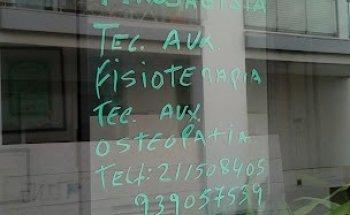 Tec. Aux.
Fisioterapia
Tec. Aux.
Osteopatia
Telf: 211508405
939057539